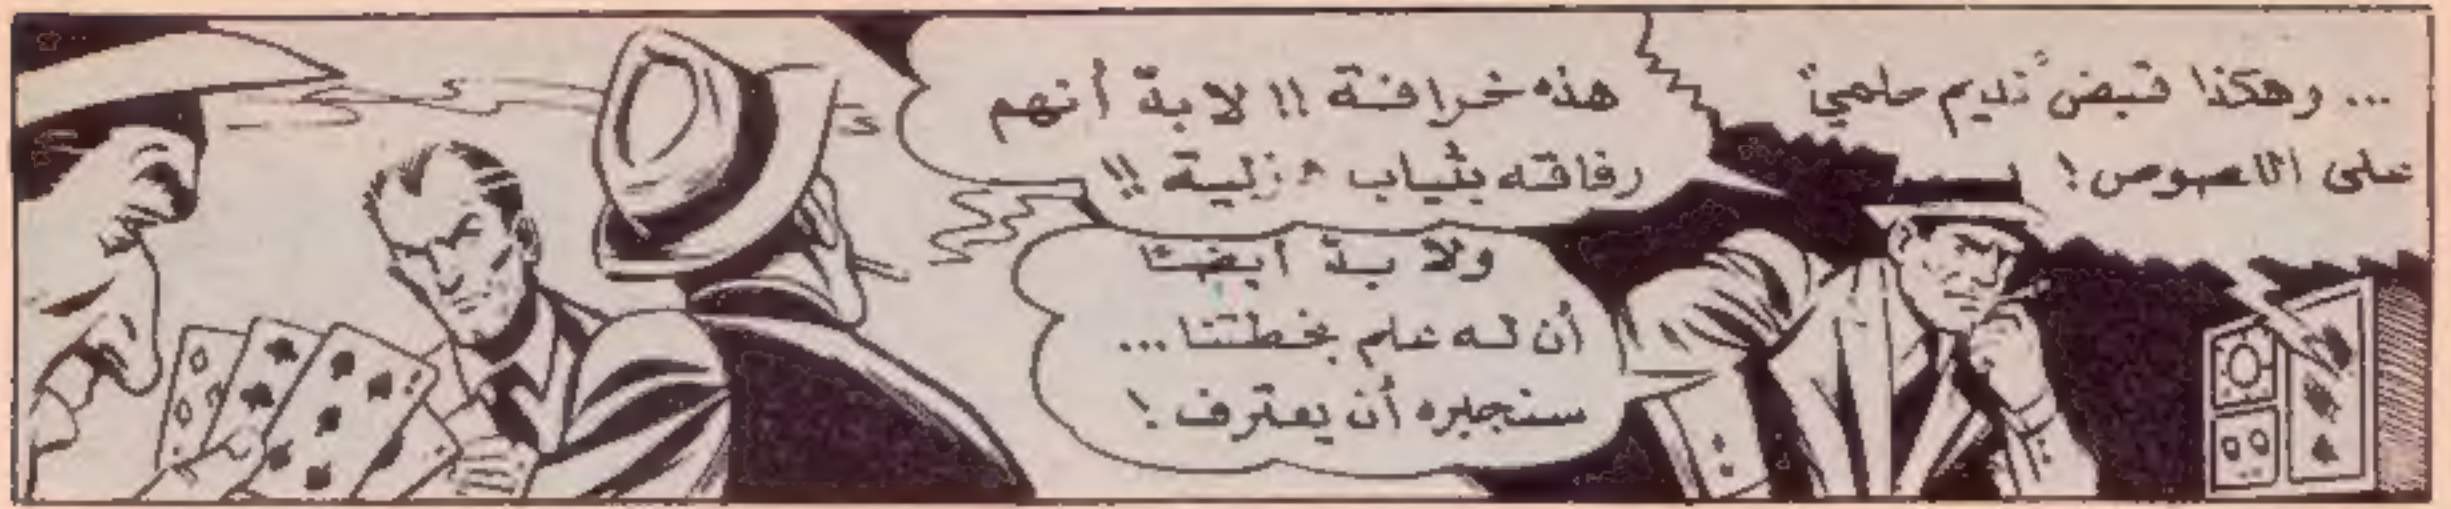 ... وهكذا قبض "نديم حلمي"
على اللصوص !
هذه خرافة !! لا بدّ أنهم
رفاقه بثياب هزلية !!
ولا بدّ أيضًا
أن له علم بخطتنا ...
سنجبره أن يعترف !